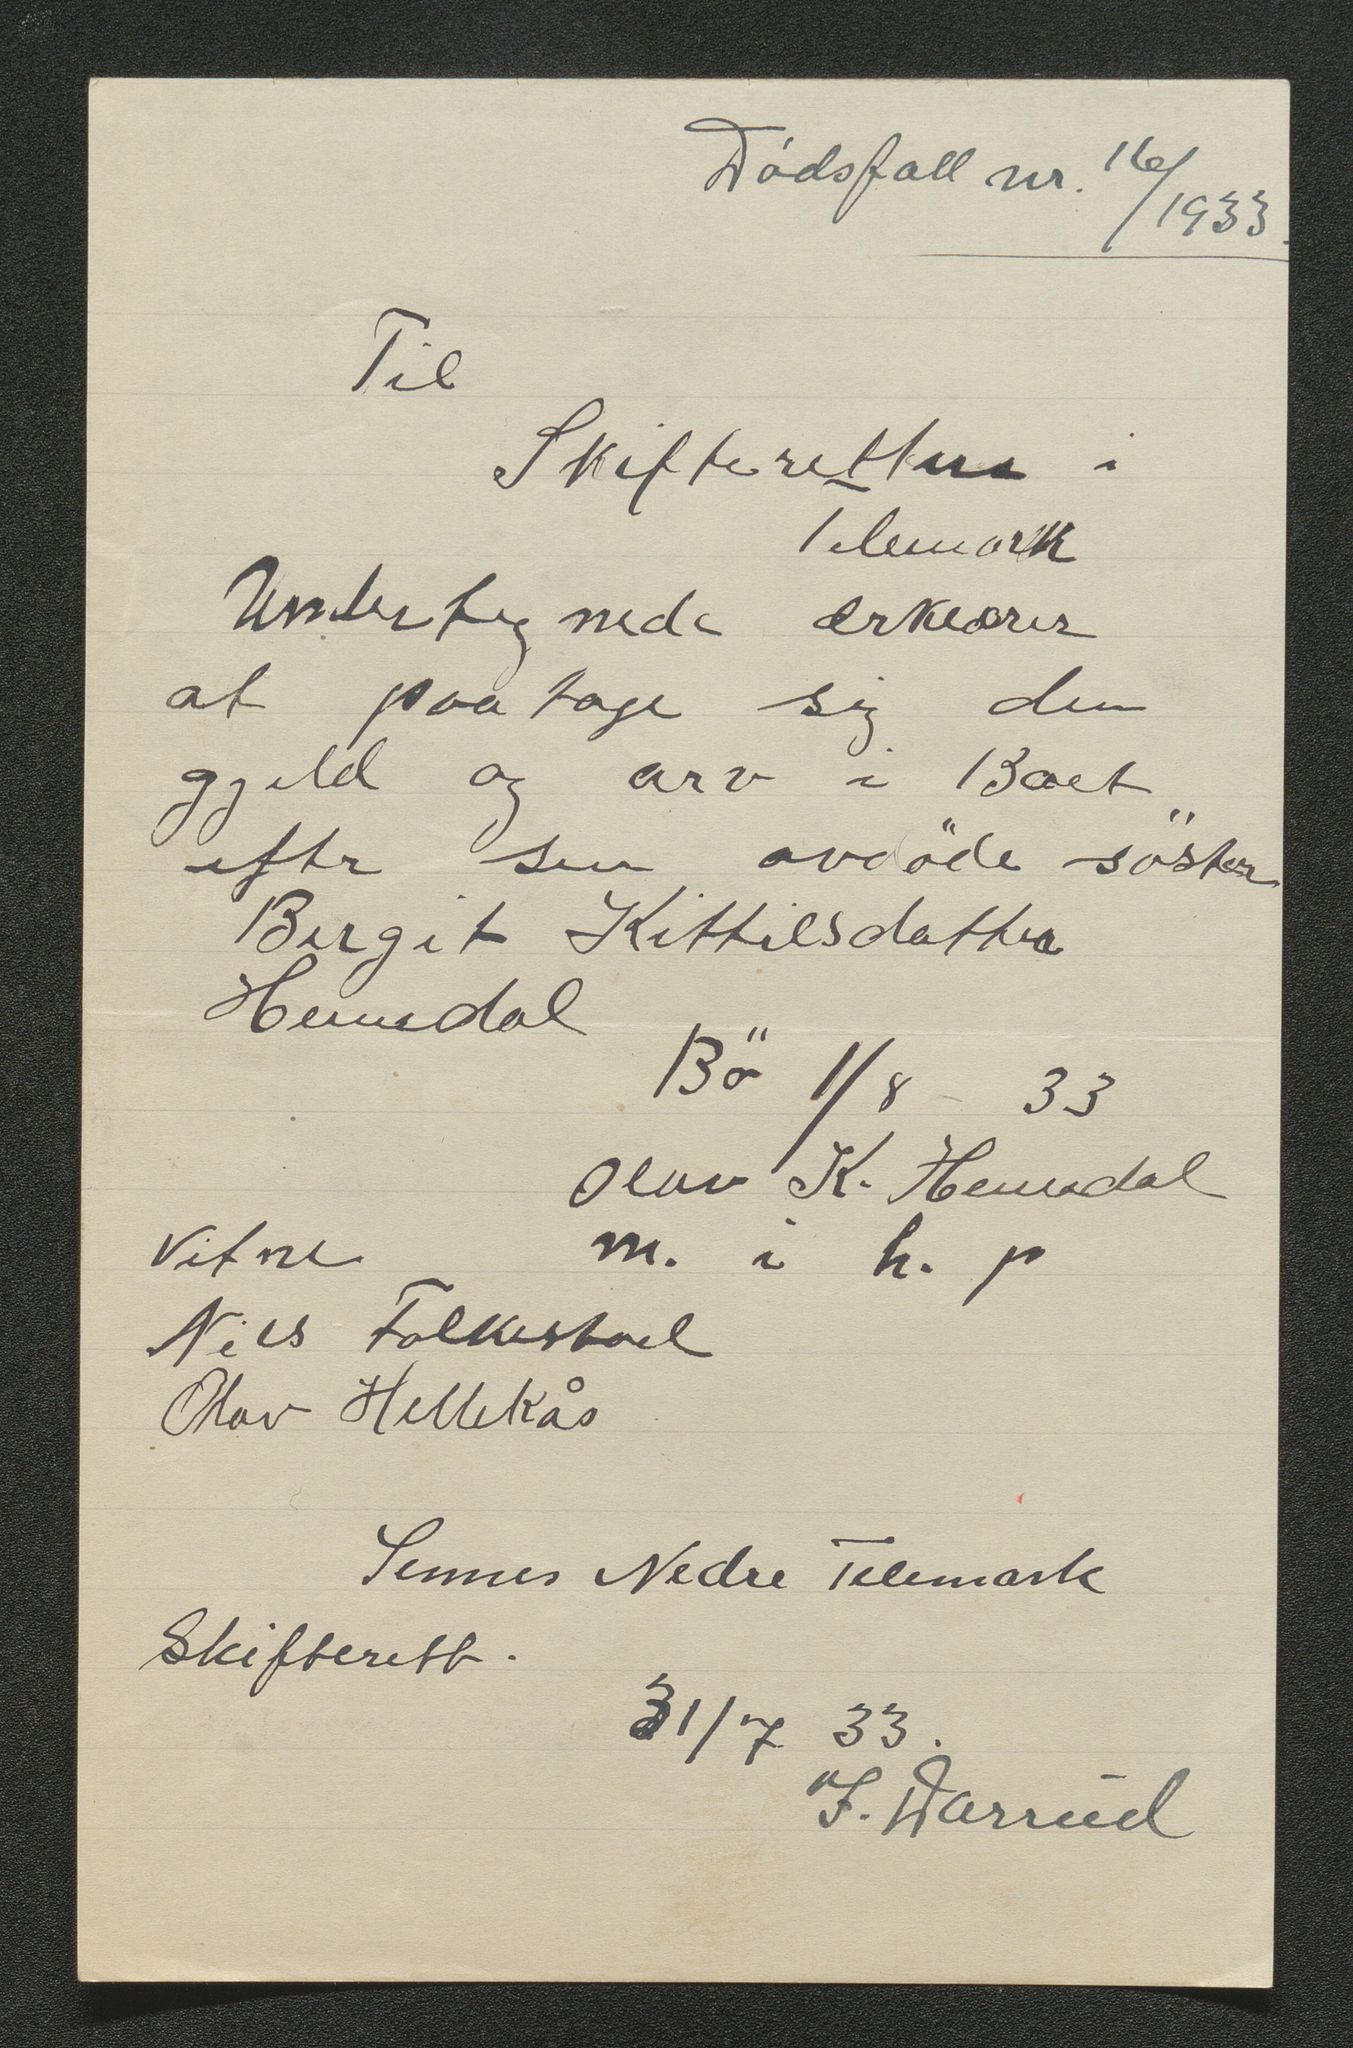 Dødsfall nr. 16/1933.
Til
Skifteretten i
Telemark
Undertegnede ærkeærer
at paatage sig den
gjeld og arv i Boet
efter sin avdöde söster
Birgit Kittilsdatter
Hemsdal
Bö 1/8 - 33
Olav K. Hemsdal
m. i h. p
Vitne
Nils Folkestad
Olav Hellekås
Sennes Nedre Telemark
Skifterett.
31/7 33.
F. Darrud